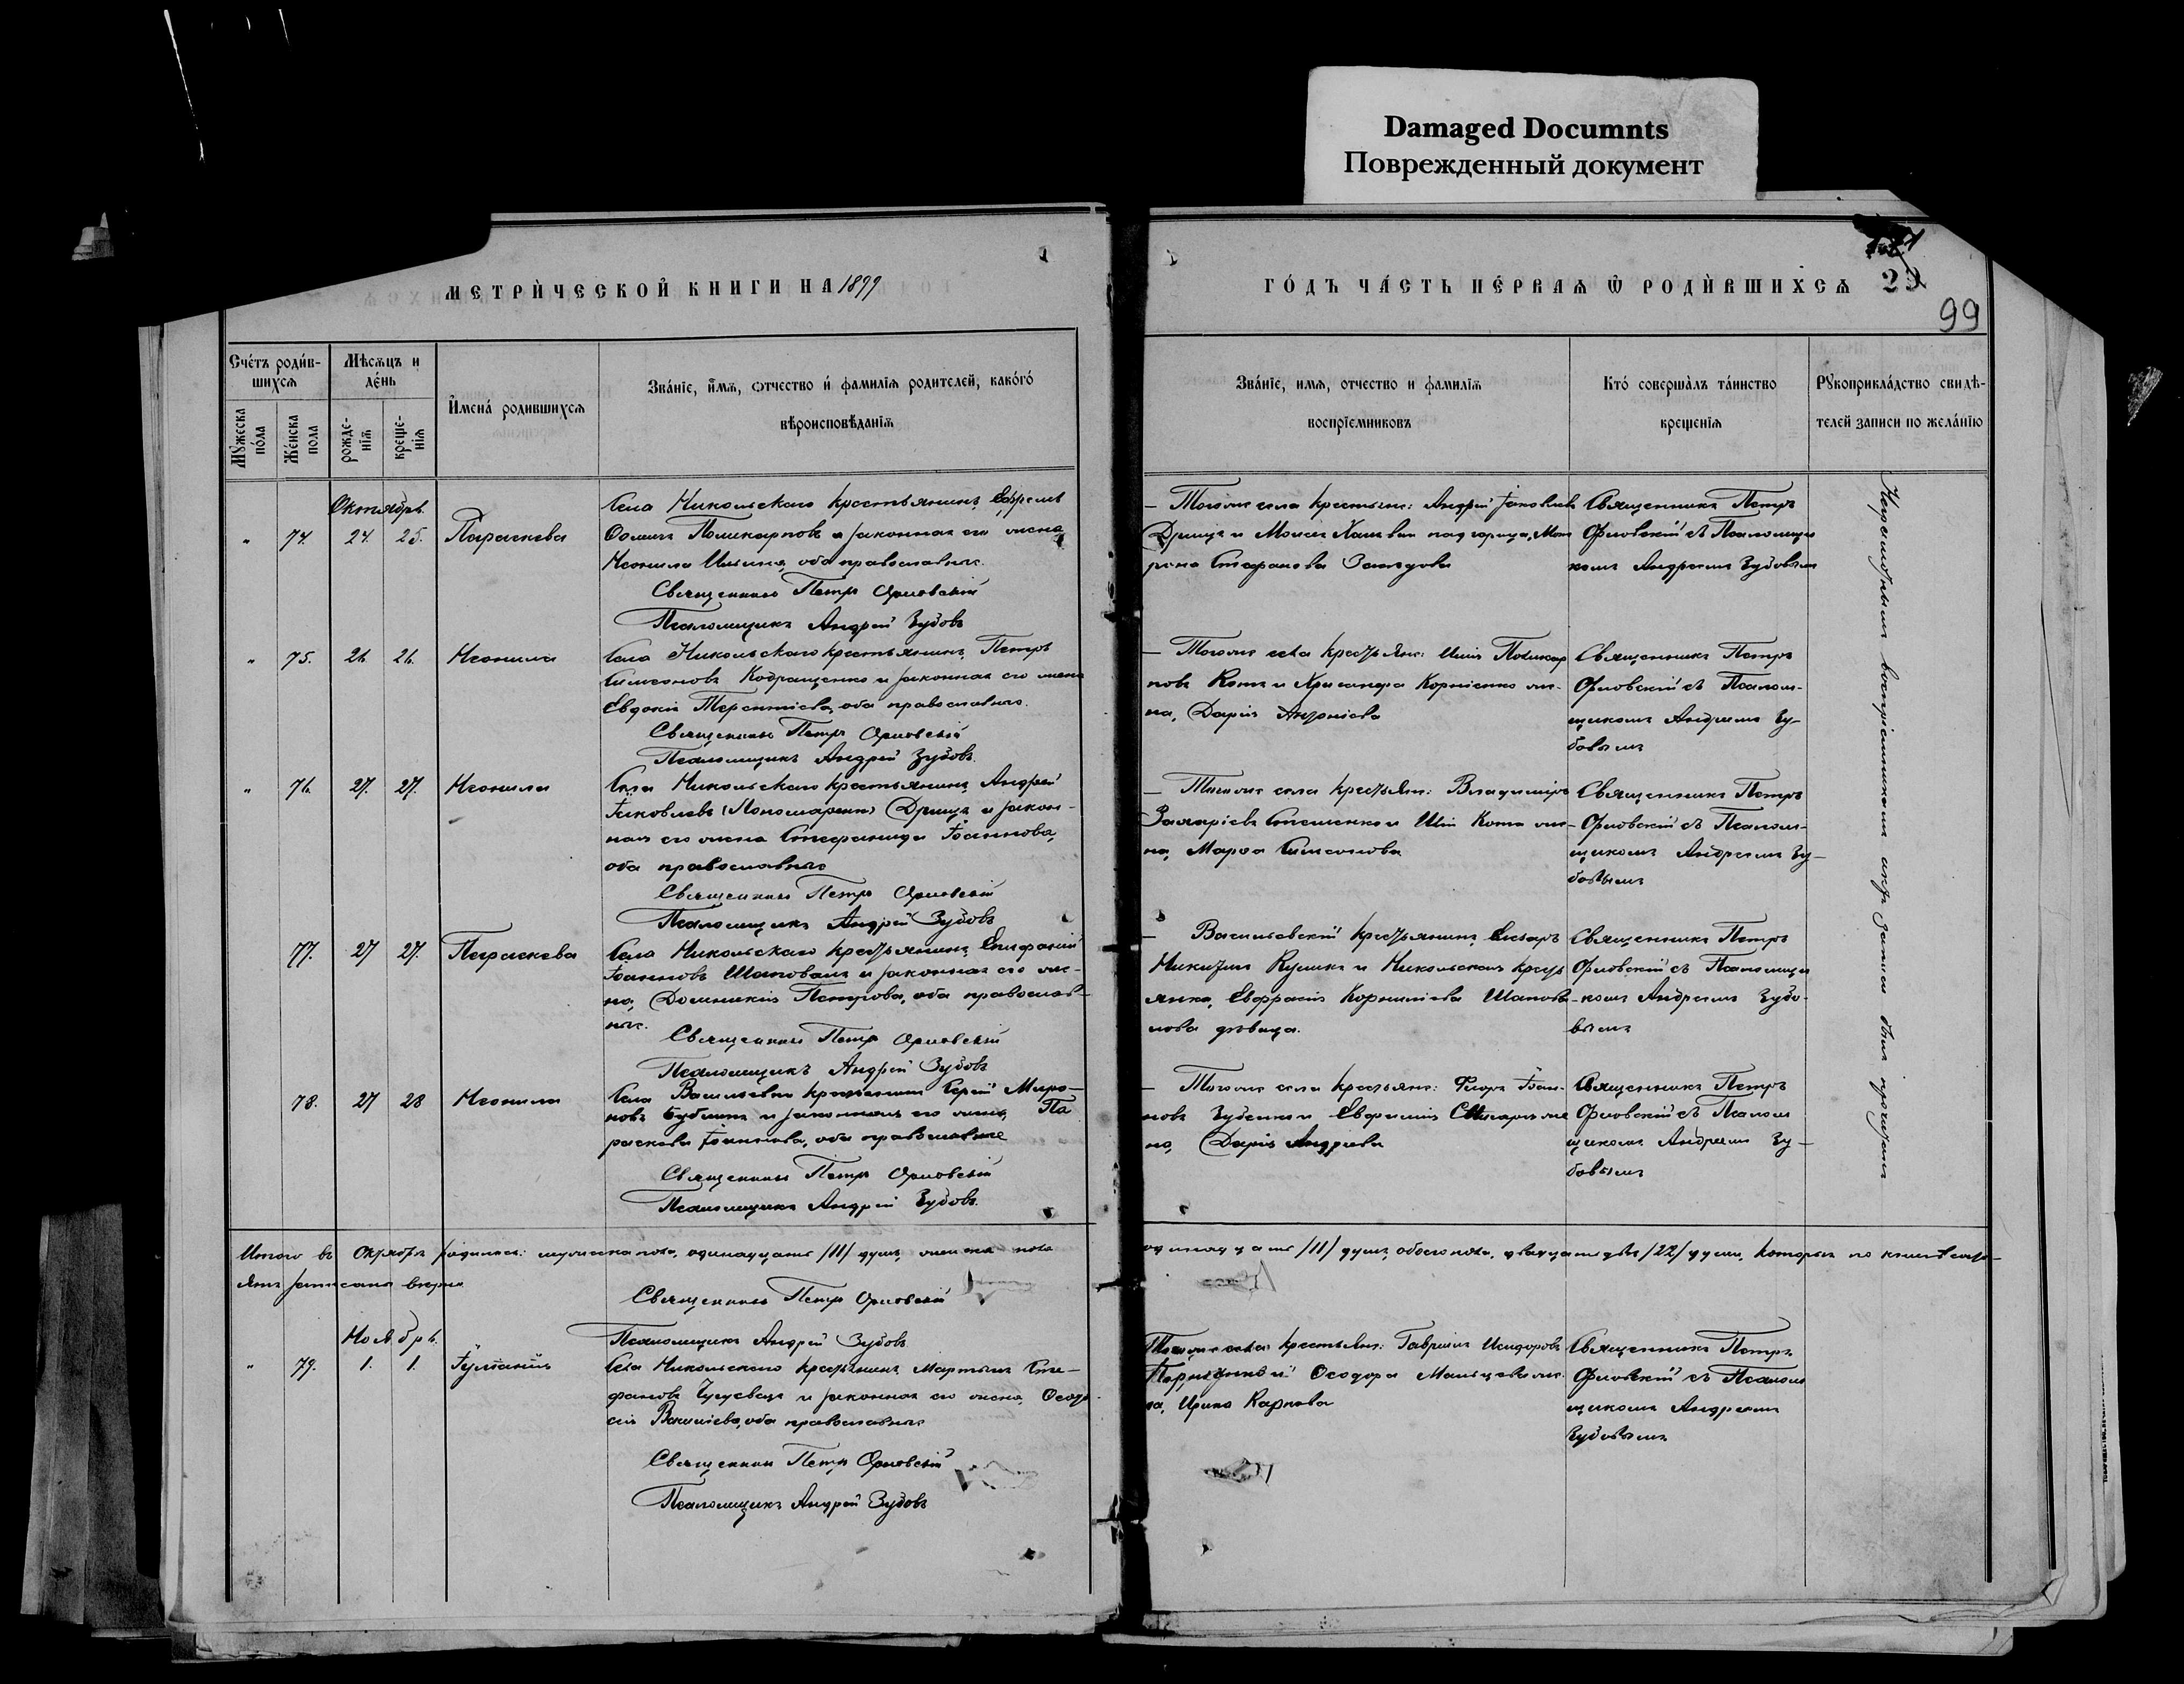 Damaged Documnts
Поврежденный документ
МЕТРИ́ЧЕСКОЙ КНИГИ НА 1899
ГО́ДЪ ЧА́СТЬ ПЕ́РВАѦ Ѡ҆ РОДИ́ВШИХСѦ 29
99
Сче́тъ роди́в-
шихсѧ
Мѣсѧцъ и
де́нь
Мꙋ́жеска
по́ла
Же́нска
пола
рожде-
нїѧ
креще-
нїѧ
И҆мена́ родившихсѧ
Зва́нїе, и҆́мѧ, ѻтчество и҆ фамилїѧ родителей, како́гѡ
вѣроисповѣданїѧ
Зва́нїе, имѧ, отчество и фамилїѧ
воспрїемниковъ
Кто́ соверша̀лъ та́инство
крещенїѧ
Рꙋкоприкла́дство свидѣ-
телей записи по жела́нїю
Октябрь.
" 74. 24. 25. Параскева
Села Никольскаго крестьянинъ Ефремъ
Ѳоминъ Поликарповъ и законная его жена
Неонила Ильина, оба православные.
Священникъ Петръ Орловскій
Псаломщикъ Андрей Зубовъ
— Того же села крестьяне: Андрей Іаковлевъ
Дрища и Моисея
Стефанова
Священникъ Петръ
Орловскій съ Псаломщи
комъ Андреемъ Зубовымъ
" 75. 26. 26. Неонила
Села Никольскаго крестьянинъ Петръ
Симеоновъ Кобращенко и законная его жена
Евдокія Терентіева, оба православные.
Священникъ Петръ Орловскій
Псаломщикъ Андрей Зубовъ.
— Того же села крестьяне: Илія Поликар
повъ Кота и Корніенко же-
на, Дарія
Священникъ Петръ
Орловскій съ Псалом-
щикомъ Андреемъ Зу-
бовымъ
" 76. 27. 27. Неонила
Села Никольскаго крестьянинъ Андрей
Іаковлевъ (Пономаренко) Дрища и закон-
ная его жена Стефанида Іоаннова,
оба православные
Священникъ Петръ Орловскій
Псаломщикъ Андрей Зубовъ
— Того же села крестьяне: Владиміръ
Захаріевъ Стешенко и Иліи Кота же-
на, Марѳа Симеонова
Священникъ Петръ
Орловскій съ Псалом-
щикомъ Андреемъ Зу-
бовымъ
77. 27 27. Параскева
Села Никольскаго крестьянинъ Епифаній
Іоанновъ Шаповалъ и законная его же-
на, Домникія Петрова, оба православ-
ные.
Священникъ Петръ Орловскій
Псаломщикъ Андрей Зубовъ
— Васильевскій крестьянинъ
Никитинъ и Никольская кресть
янка, Евфросія Корниліева Шапова-
лова дѣвица.
Священникъ Петръ
Орловскій съ Псаломщи
комъ Андреемъ Зубо-
вымъ
78. 27 28 Неонила
Села Васильевки крестьянинъ Сергій Миро-
новъ Бублика и законная его жена, Па
раскева Іоаннова, оба православные
Священникъ Петръ Орловскій
Псаломщикъ Андрей Зубовъ.
— Того же села крестьяне: Флоръ Іоан-
новъ Зубенко и Евфимія же
на, Дарія Андреева
Священникъ Петръ
Орловскій съ Псалом
щикомъ Андреемъ Зу-
бовымъ
Неграмотнымъ воспріемникамъ актъ записи былъ прочитанъ
Итого въ Октябрѣ родилось: мужеска пола, одинадцать /11/ душъ, женска пола
одинадцать /11/ душъ, обоего пола, двадцать двѣ /22/ души, которые по
записано вѣрно
Священникъ Петръ Орловскій
Псаломщикъ Андрей Зубовъ
Ноябрь.
" 79. 1. 1. Іуліанія
Села Никольскаго крестьянинъ Мартинъ Сте-
фановъ и законная его жена, Ѳеодо
сія Василіева, оба православные
Священникъ Петръ Орловскій
Псаломщикъ Андрей Зубовъ
Того же села крестьяне: Гавріилъ Исидоровъ
и Ѳеодора же-
на, Ирина Карпова
Священникъ Петръ
Орловскій съ Псалом
щикомъ Андреемъ
Зубовымъ